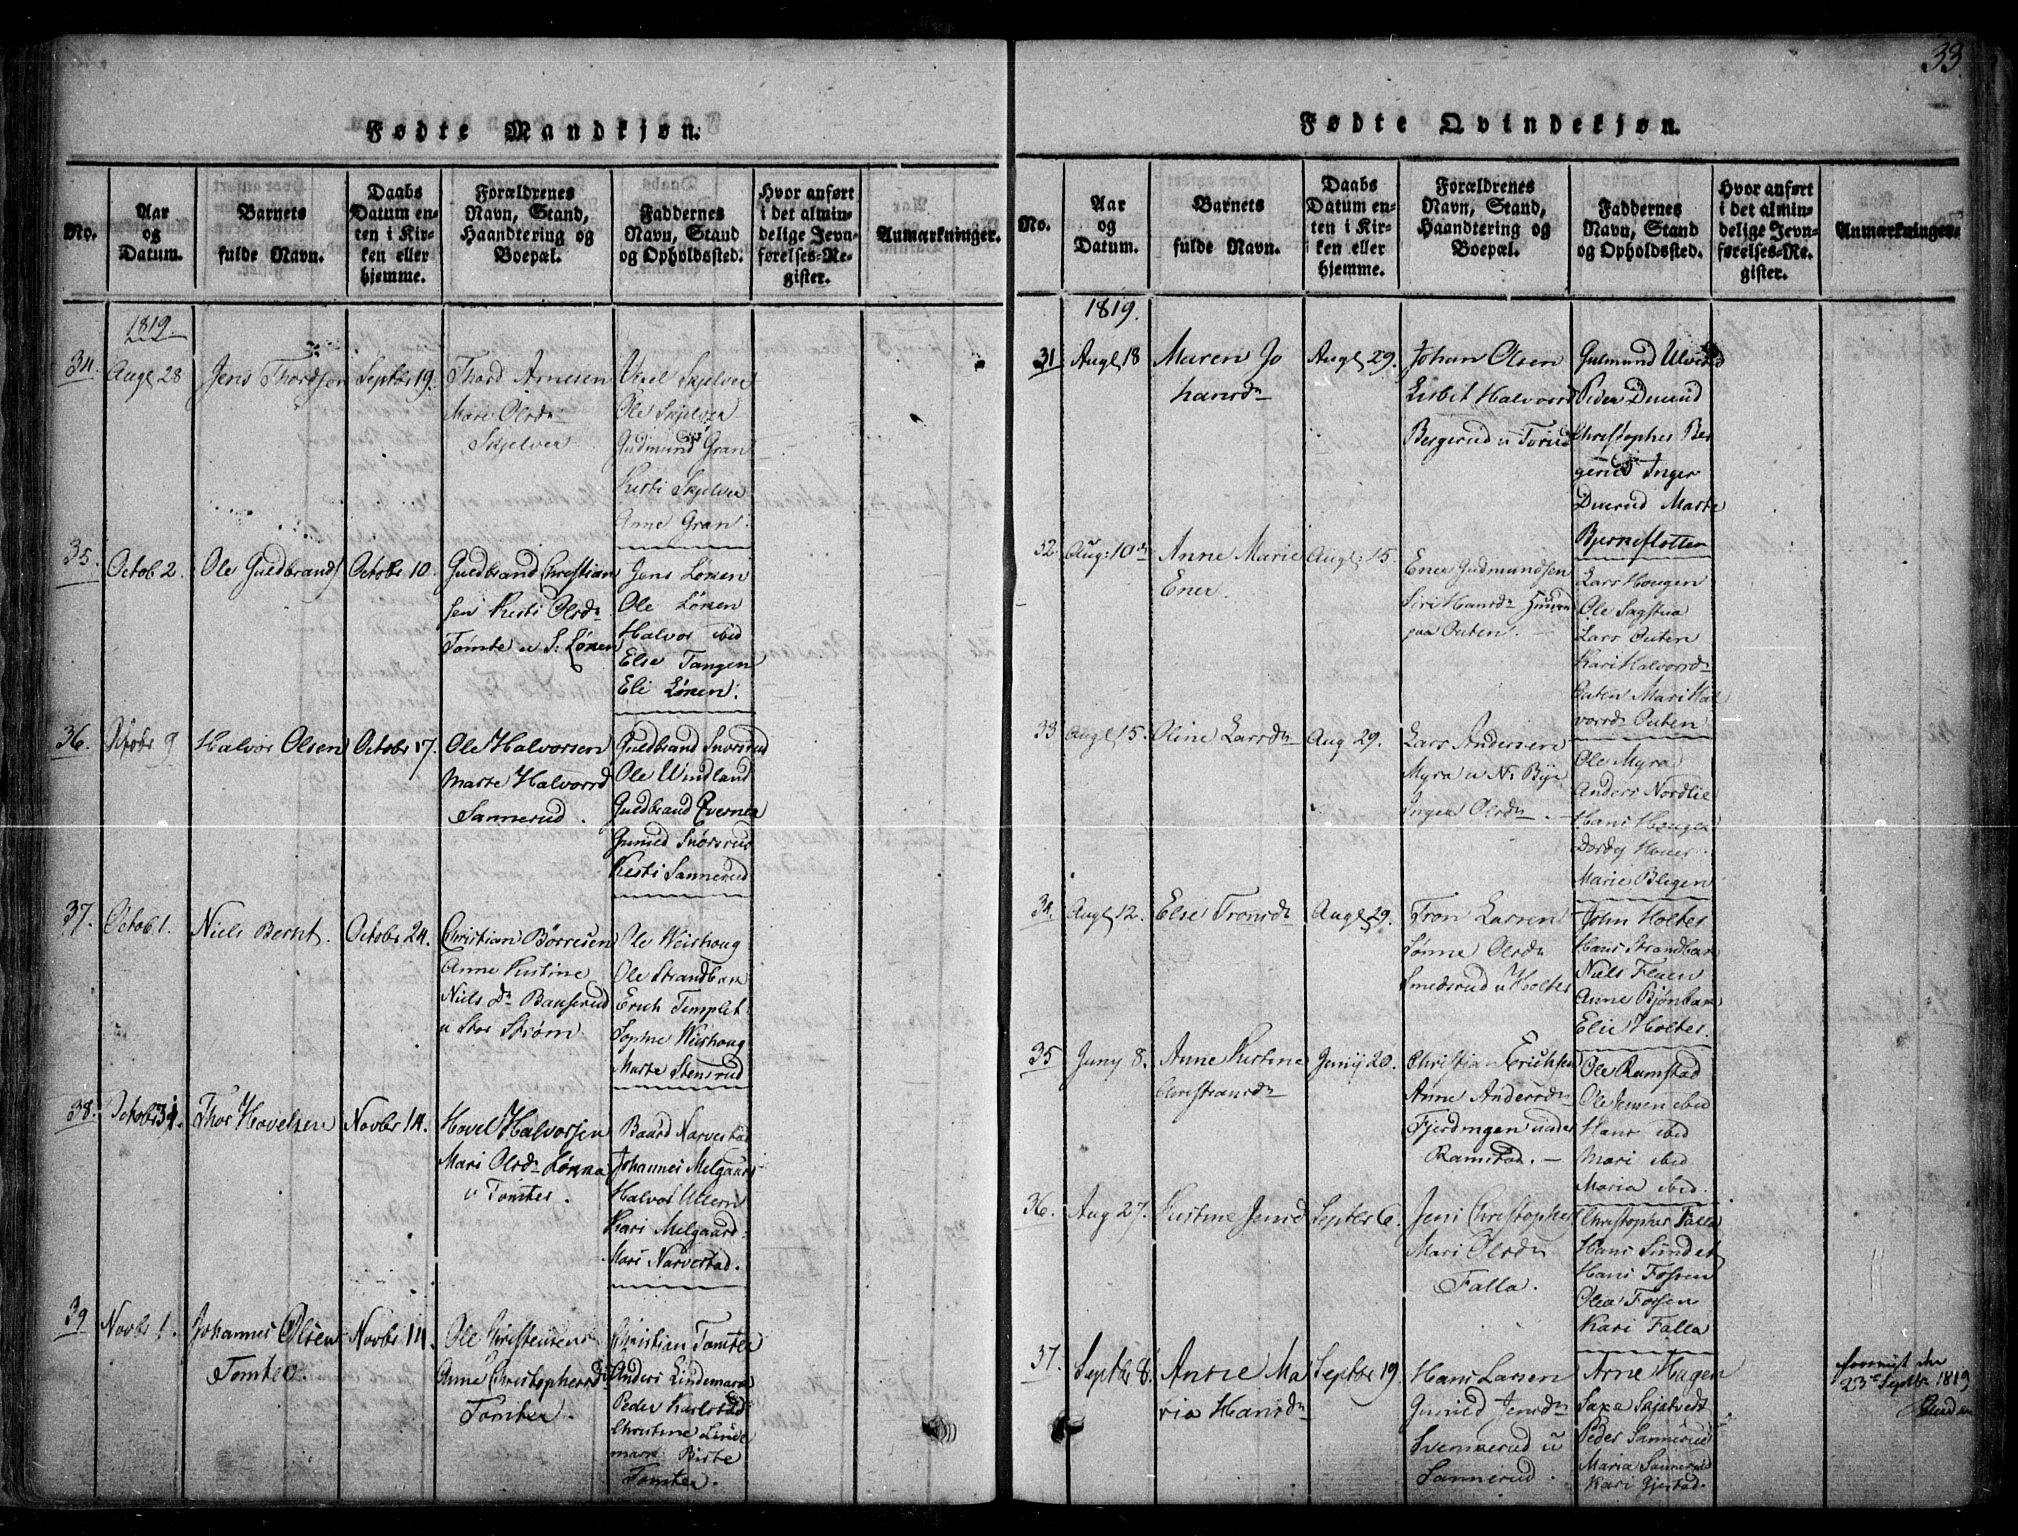 33.
Fødte Mandkjøn.
No.
Aar og Datum.
Barnets fulde Navn.
Daabs Datum enten i Kirken eller hjemme.
Forældrenes Navn, Stand, Haandtering og Boepæl.
Faddernes Navn, Stand og Opholdssted.
Hvor anført i det almindelige Jevnførelses-Register.
Anmærkninger.
1819.
34.
Augl 28
Jens Thordsen
Septbr 19.
Thord Arnesen
Mari Olsdr
Skjelver
Skjelver
Ole Skjelver
Gudmund Gran
Kirsti Skjelver
Anne Gran.
35.
Octob 2.
Ole Guldbrands
Octobr 10.
Guldbrand Christian
sen Kirsti Olsdr
Tomte u S: Lønen
Jens Lønen
Ole Lønen
Halvor ibid
Else Tangen
Eli Lønen.
36.
Octobr 9
Halvor Olsen
Octobr 17.
Ole Halvorsen
Marte Halvorsd
Sannerud.
Guldbrand Snorsrud
Ole Windland
Guldbrand Qverner
Gunild Snorsrud
Kirsti Sannerud
37.
Octob 1.
Niels Bernt.
Octobr 24.
Christian Børresen
Anne Kirstine
Niels Dr Bauserud
u Stor Strøm
Ole Weishoug
Ole Strandbern
Erich Templet
Sophie Weishoug
Marte Stensrud
38.
Octobr 31.
Thor Hovelsen
Novbr 14.
Hovel Halvorsen
Mari Olsdr Lønna
u Tomter.
Baard Narvestad
Johannes Melgaard
Halvor Ullern
Kari Melgaard.
Mari Narvestad.
39
Novbr 1.
Johannes Olsen
Tomter.
Novbr 14.
Ole Christensen
Anne Christophersdr
Tomter.
Christian Tomter
Anders Lindemark
Peder Karlstad
Christine Linde
mark Birte
Tomter.
Fødte Qvindekjøn.
No.
Aar og Datum.
Barnets fulde Navn.
Daabs Datum enten i Kirken eller hjemme.
Forældrenes Navn, Stand, Haandtering og Boepæl.
Faddernes Navn, Stand og Opholdssted.
Hvor anført i det almindelige Jevnførelses-Register.
Anmærkninger.
1819.
31
Augl 18
Maren Jo
hansdr
Augl 29.
Johan Olsen
Lisbet Halvorsd
Bergerud u Torud
Gulmund Ulverud
Peder Duerud
Christopher Ber
gerud Inger
Duerud Marte
Bjerkeflotten
32.
Aug: 10de
Anne Marie
Ener.
Augl 15.
Ener Gudmundsen
Siri Hansdr
paa Outen.
Lars Hougen
Ole Sagstua
Lars Outen
Kari Halvorsdr
Outen Mari Hal
vorsdr Outen
33
Augl 15.
Oline Larsdr
Aug 29.
Lars Andersen
Myra u N: Bye
Inger Olsdr.
Ole Myra
Anders Nordlie
Hans Hougen
Dordy Houer
Marie Bligen
34.
Augl 12.
Else Tronsdr
Augl 29.
Tron Larsen
Sønne Olsdr
Smedsrud u Holter
John Holter
Hans Strandbakk
Niels Fluen
Anne Bjønbak
Elie Holter.
35
Juny 8.
Anne Kirstine
Christiansdr
Juny 20.
Christian Erichsen
Anne Andersdr
Fjerdingen under
Ramstad.
Ole Ramstad
Ole Jensen ibid
Hans ibid
Mari ibid
Maria ibid.
36.
Aug 27.
Kirstine Jensd
Septbr 6.
Jens Christopher
Mari Olsdr
Falla.
Christopher Falla
Hans Sundet
Hans Fossen
Olea Fossen
Kari Falla
37.
Septbr 8.
Anne Ma
ria Hansdr
Septbr 19.
Hans Larsen
Gunild Jensdr
Svennerud u
Sannerud.
Arne Hagen
Saxe Skjatvedt
Peder Sannerud
Maria Sannerud
Kari Gjestad.
23de Septbr 1819